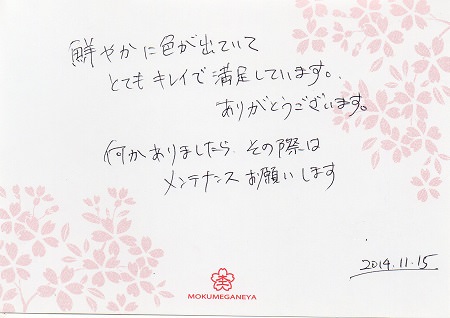 鮮やかに色が出ていて
とてもキレイで満足しています。
ありがとうございます。
何かありましたら、その際は
メンテナンスお願いします
2014.11.15
MOKUMEGANEYA